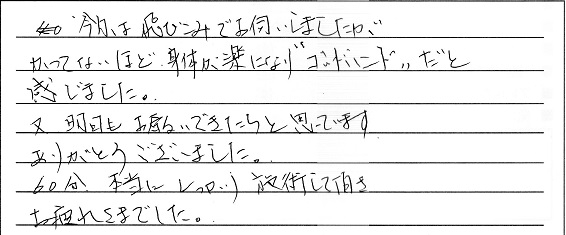 今日は飛びこみでお伺いしましたが、
かつてないほど身体が楽になり"ゴッドハンド"だと
感じました。
又明日もお願いできたらと思っています
ありがとうございました。
60分 本当にしっかり施術して頂き
お疲れさまでした。